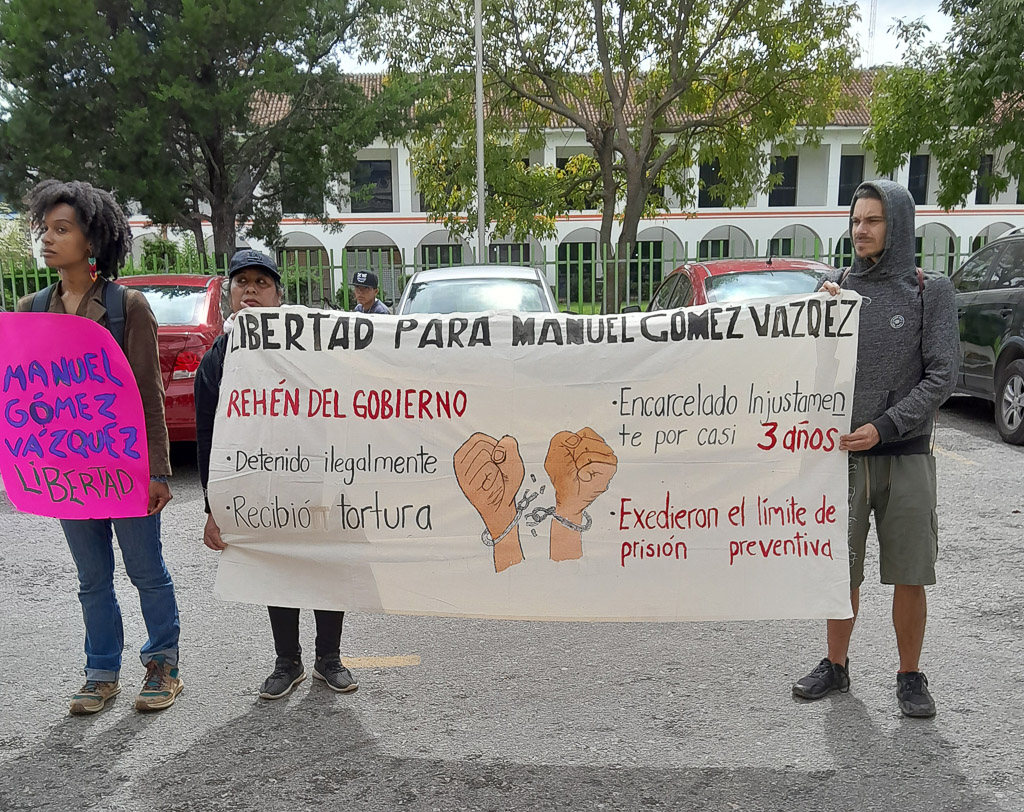 MANUEL
GÓMEZ
VÁZQUEZ
LIBERTAD
LIBERTAD PARA MANUEL GÓMEZ VAZQEZ
REHÉN DEL GOBIERNO
• Detenido ilegalmente
• Recibió tortura
• Encarcelado Injustamen
te por casi 3 años
• Exedieron el límite de
prisión preventiva